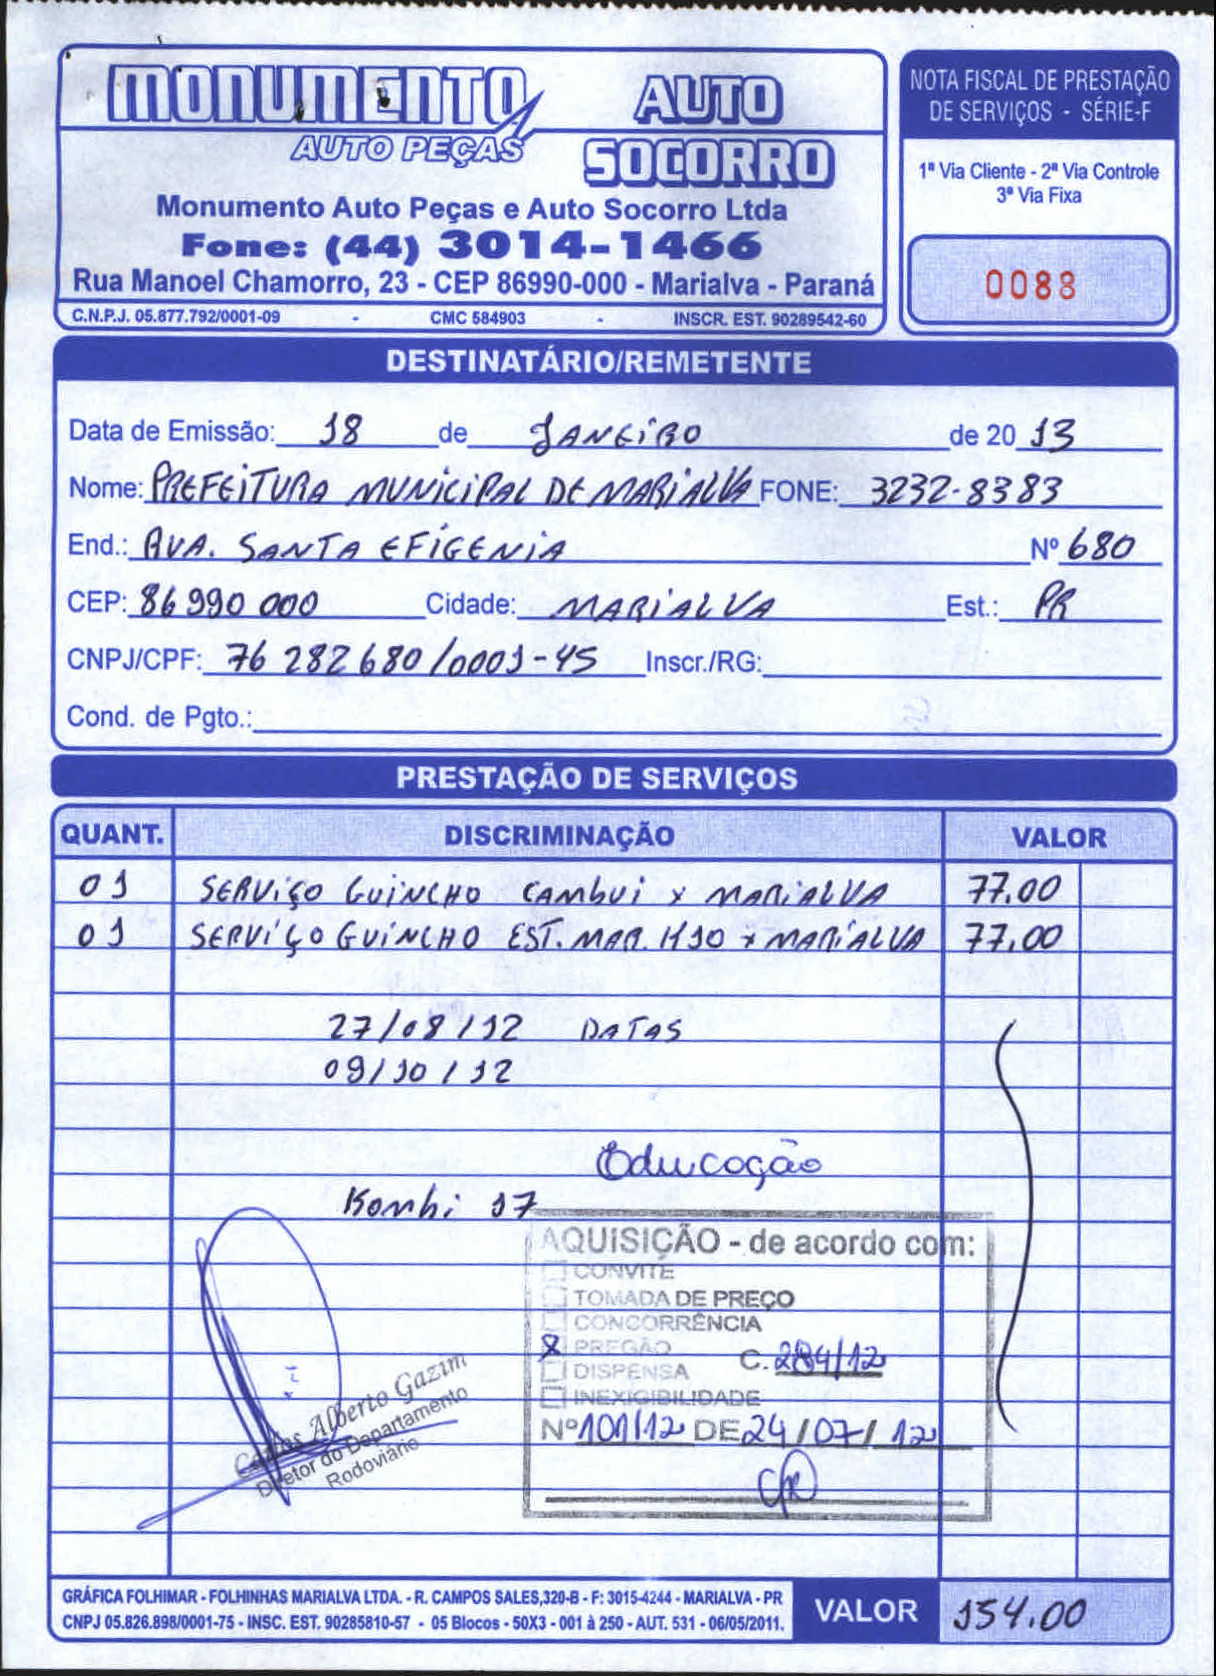 MONUMENTO
AUTO PEÇAS
AUTO
SOCORRO
Monumento Auto Peças e Auto Socorro Ltda
Fone: (44) 3014-1466
Rua Manoel Chamorro, 23 - CEP 86990-000 - Marialva - Paraná
C.N.P.J. 05.877.792/0001-09 - CMC 584903 - INSCR. EST. 90289542-60
NOTA FISCAL DE PRESTAÇÃO
DE SERVIÇOS - SÉRIE-F
1ª Via Cliente - 2ª Via Controle
3ª Via Fixa
0088
DESTINATÁRIO/REMETENTE
Data de Emissão: 18 de JANEIRO de 20 13
Nome: PREFEITURA MUNICIPAL DE MARIALVA FONE: 3232-8383
End.: AVA. SANTA EFIGENIA Nº 680
CEP: 86990 000 Cidade: MARIALVA Est.: PR
CNPJ/CPF: 76 282 680/0001-45 Inscr./RG:
Cond. de Pgto.:
PRESTAÇÃO DE SERVIÇOS
QUANT. DISCRIMINAÇÃO VALOR
01 SERVIÇO GUINCHO CAMBUI x MARIALVA 77.00
01 SERVIÇO GUINCHO EST. MAR. K10 x MARIALVA 77.00
27/08/12 DATAS
09/10/12
Educação
Kombi 17
AQUISIÇÃO - de acordo com:
CONVITE
TOMADA DE PREÇO
CONCORRÊNCIA
X PREGÃO
C. 284/12
DISPENSA
INEXIGIBILIDADE
Nº 101/12 DE 24/07/12
Carlos Alberto Gazim
Diretor do Departamento
Rodoviário
GRÁFICA FOLHIMAR - FOLHINHAS MARIALVA LTDA. - R. CAMPOS SALES,320-B - F: 3015-4244 - MARIALVA - PR
CNPJ 05.826.898/0001-75 - INSC. EST. 90285810-57 - 05 Blocos - 50X3 - 001 à 250 - AUT. 531 - 06/05/2011.
VALOR 154.00